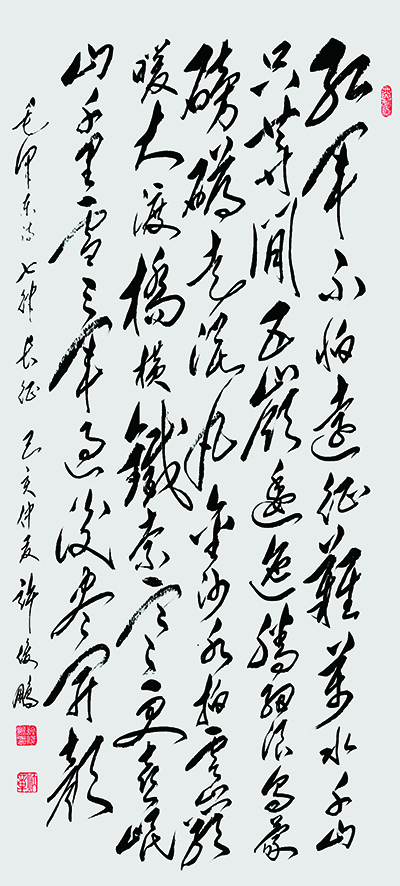 紅軍不怕遠征難萬水千山
只等閒五嶺逶迤騰細浪烏蒙
磅礴走泥丸金沙水拍雲崖
暖大渡橋橫鐵索寒更喜岷
山千里雪三軍過後盡開顏
毛澤東詩七律長征 己亥仲夏 許俊鵬